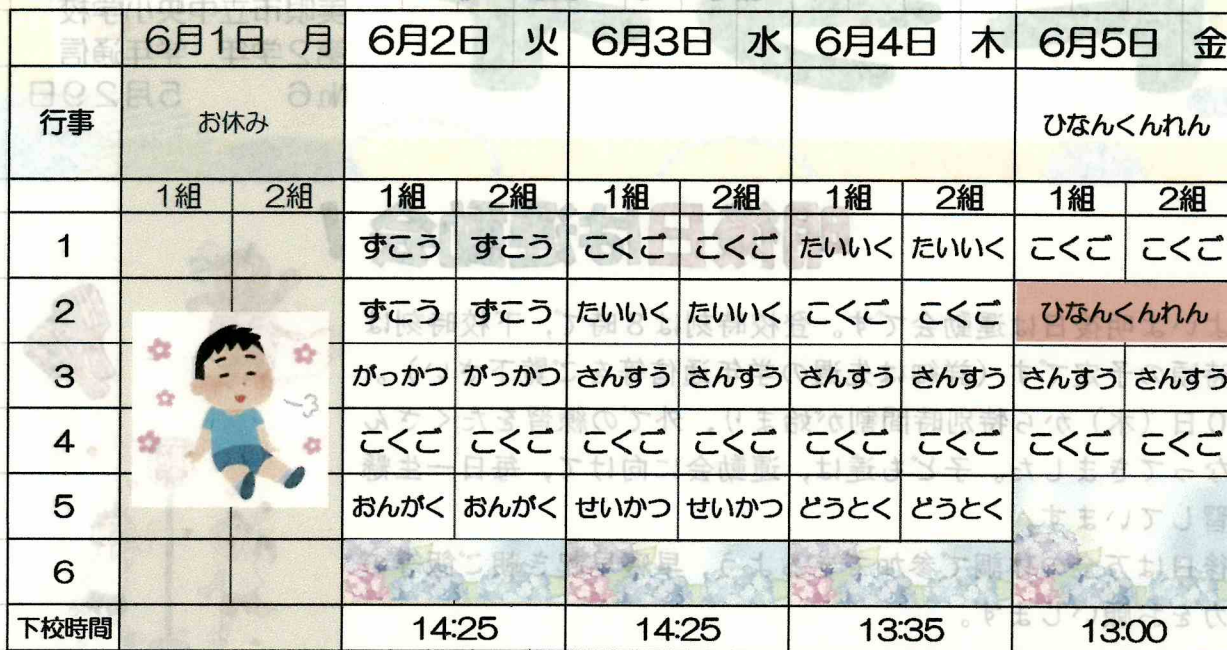 6月1日 月 6月2日 火 6月3日 水 6月4日 木 6月5日 金
行事 お休み ひなんくんれん
1組 2組 1組 2組 1組 2組 1組 2組 1組 2組
1 ずこう ずこう こくご こくご たいいく たいいく こくご こくご
2 ずこう ずこう たいいく たいいく こくご こくご ひなんくんれん
3 がっかつ がっかつ さんすう さんすう さんすう さんすう さんすう さんすう
4 こくご こくご こくご こくご こくご こくご こくご こくご
5 おんがく おんがく せいかつ せいかつ どうとく どうとく
6
下校時間 14:25 14:25 13:35 13:00